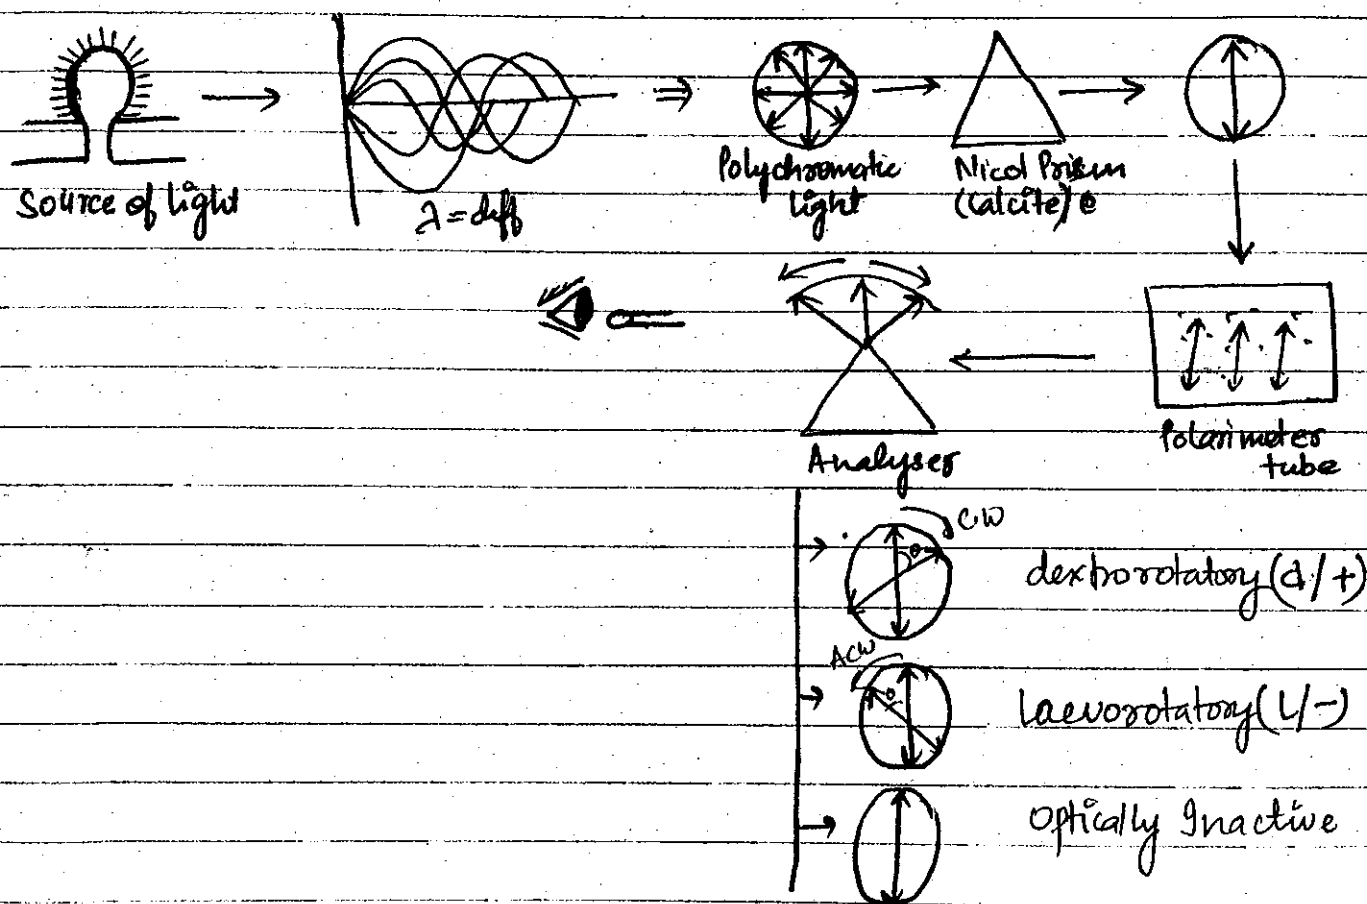 Source of light
λ = diff
Polychromatic
light
Nicol Prism
(Calcite)
Polarimeter
tube
Analyser
CW
θ
dextrorotatory (d/+)
ACW
θ
laevorotatory (l/-)
Optically Inactive